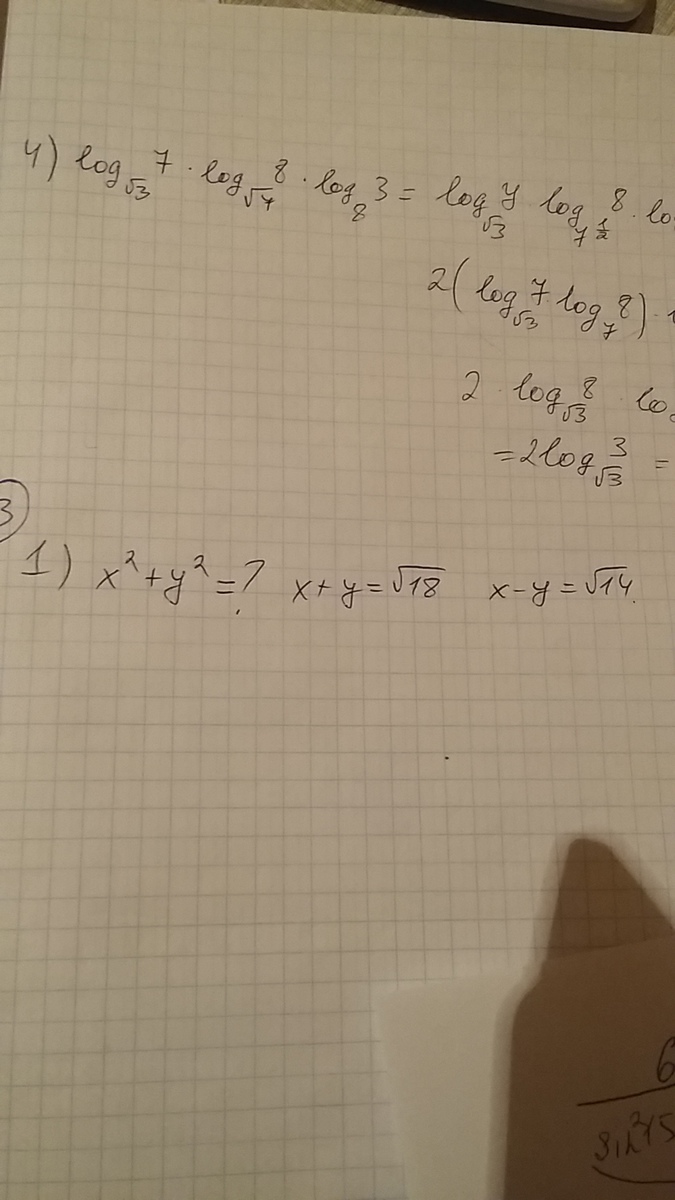 4) log_√3 7 · log_√7 8 · log_8 3 = log_√3 7 log_7^(1/2) 8 · lo
2(log_√3 7 log_7 8) ·
2 · log_√3 8 lo
= 2log_√3 3 =
3
1) x² + y² = ? x + y = √18 x - y = √14.
6
sin²15